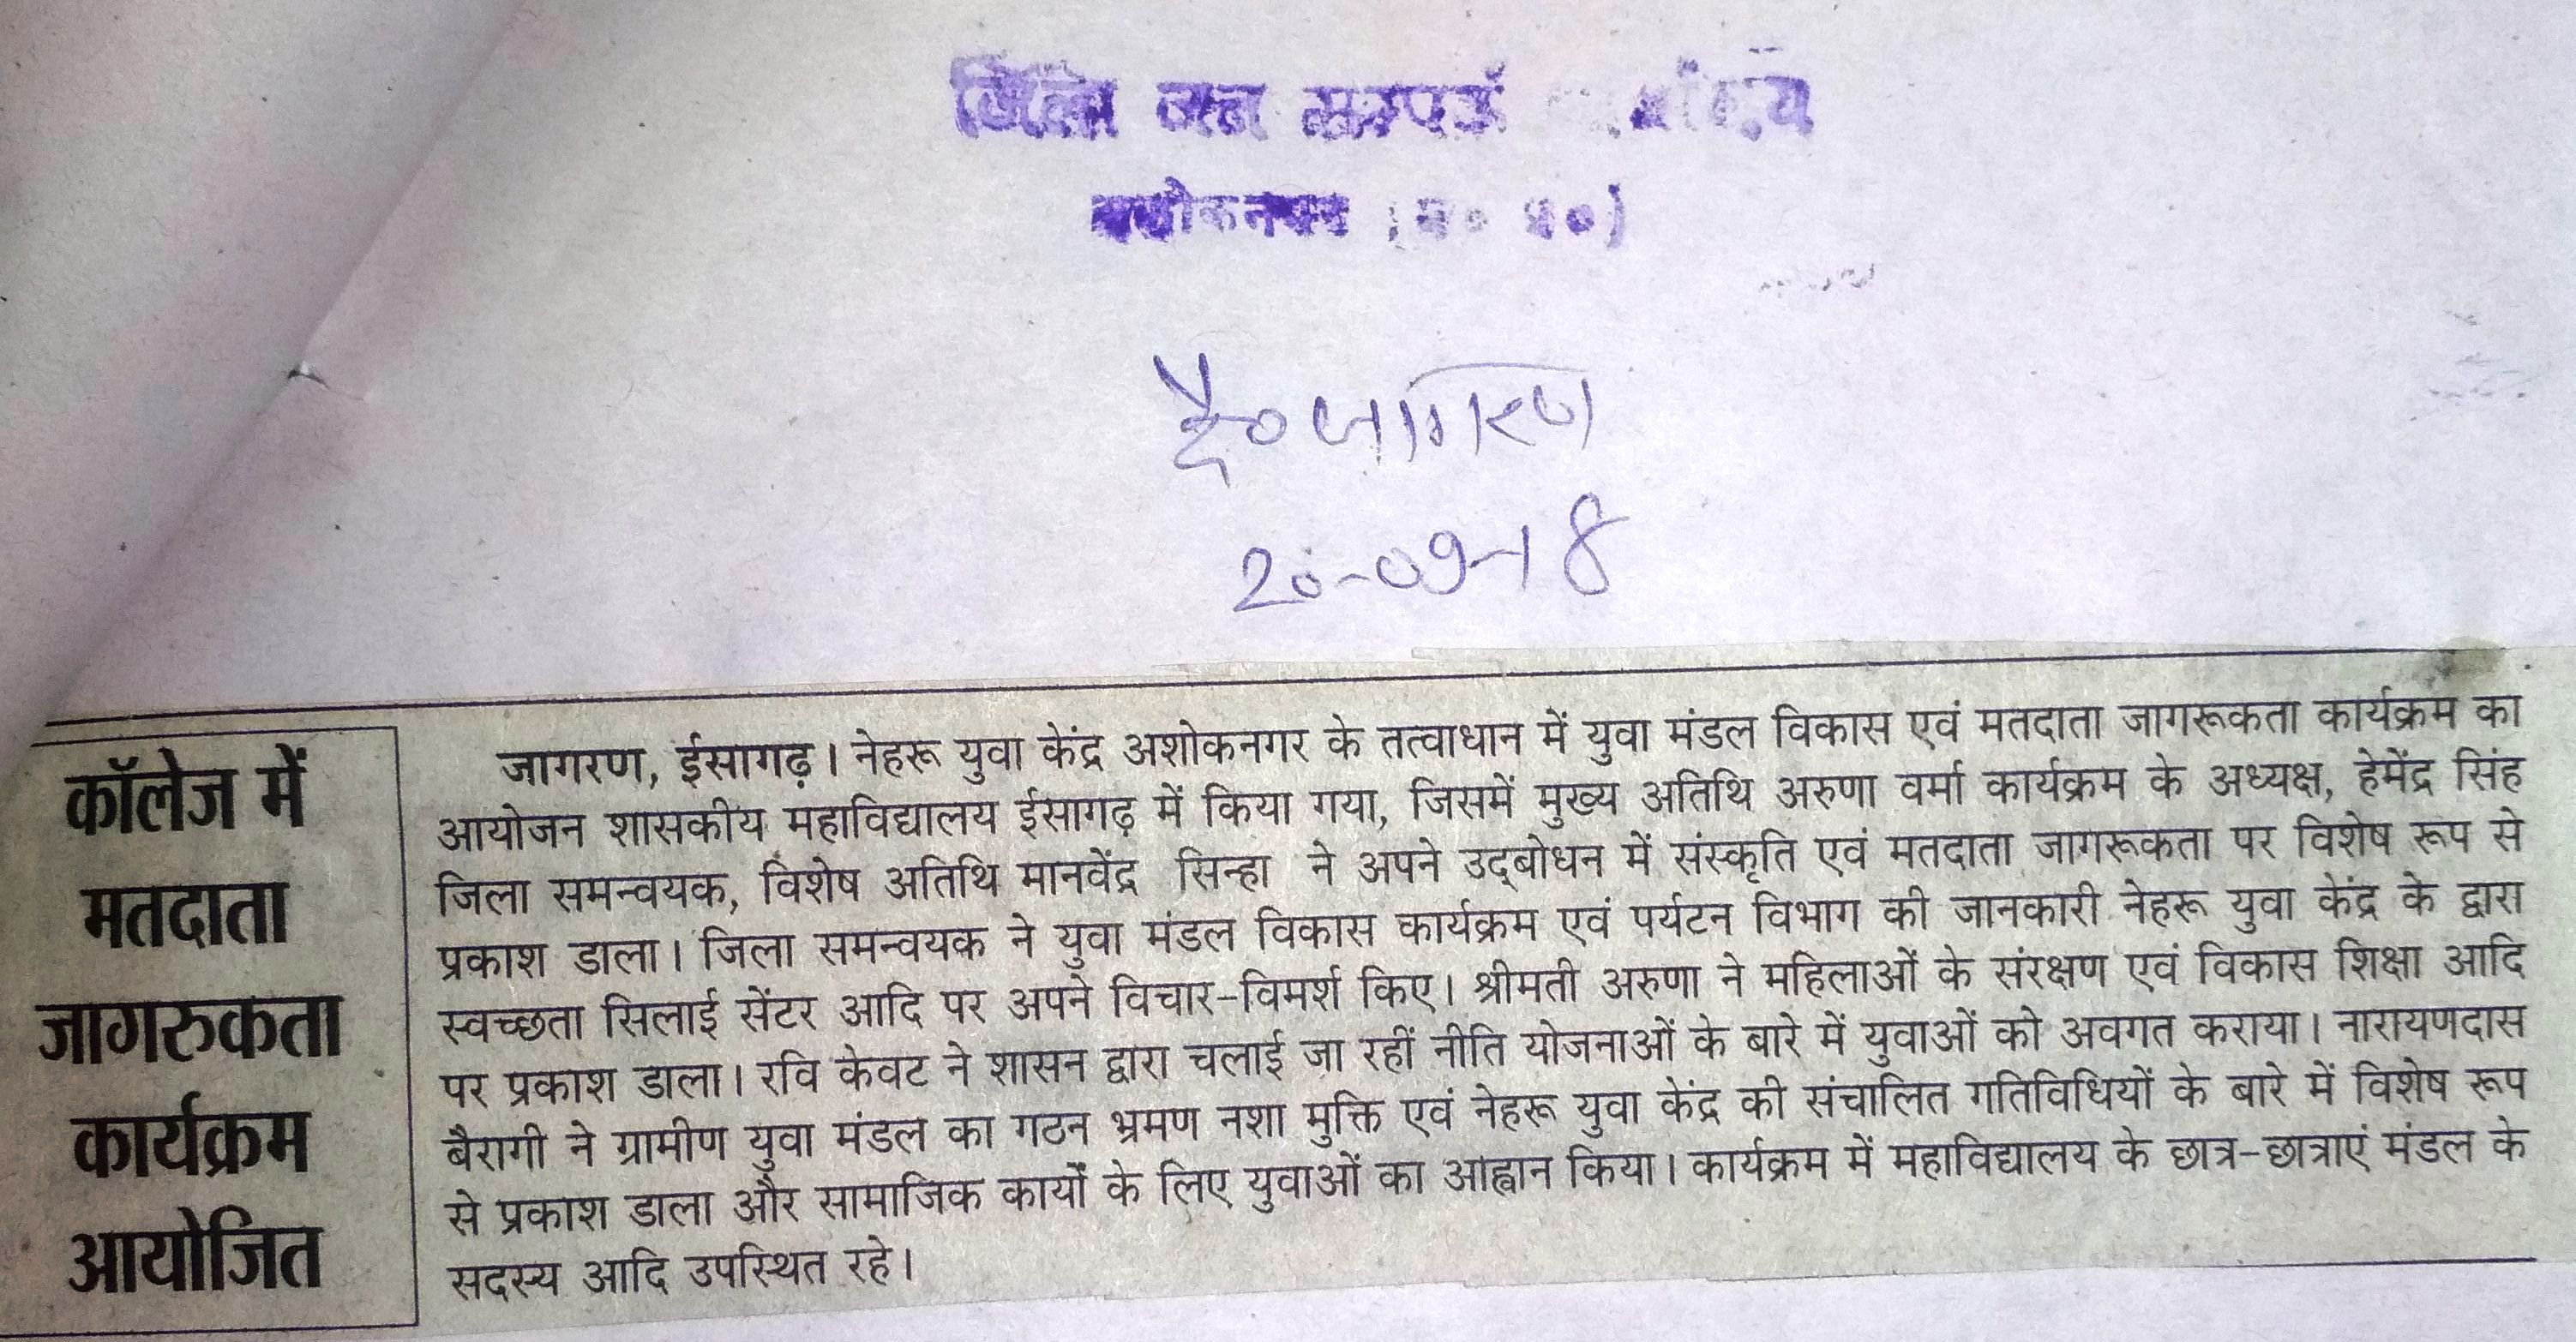 जिला जन सम्पर्क
अशोकनगर (म० प्र०)
दै० जागरण
20-09-18
कॉलेज में
मतदाता
जागरुकता
कार्यक्रम
आयोजित
जागरण, ईसागढ़। नेहरू युवा केंद्र अशोकनगर के तत्वाधान में युवा मंडल विकास एवं मतदाता जागरूकता कार्यक्रम का
आयोजन शासकीय महाविद्यालय ईसागढ़ में किया गया, जिसमें मुख्य अतिथि अरुणा वर्मा कार्यक्रम के अध्यक्ष, हेमेंद्र सिंह
जिला समन्वयक, विशेष अतिथि मानवेंद्र सिन्हा ने अपने उद्बोधन में संस्कृति एवं मतदाता जागरूकता पर विशेष रूप से
प्रकाश डाला। जिला समन्वयक ने युवा मंडल विकास कार्यक्रम एवं पर्यटन विभाग की जानकारी नेहरू युवा केंद्र के द्वारा
स्वच्छता सिलाई सेंटर आदि पर अपने विचार-विमर्श किए। श्रीमती अरुणा ने महिलाओं के संरक्षण एवं विकास शिक्षा आदि
पर प्रकाश डाला। रवि केवट ने शासन द्वारा चलाई जा रहीं नीति योजनाओं के बारे में युवाओं को अवगत कराया। नारायणदास
बैरागी ने ग्रामीण युवा मंडल का गठन भ्रमण नशा मुक्ति एवं नेहरू युवा केंद्र की संचालित गतिविधियों के बारे में विशेष रूप
से प्रकाश डाला और सामाजिक कार्यों के लिए युवाओं का आह्वान किया। कार्यक्रम में महाविद्यालय के छात्र-छात्राएं मंडल के
सदस्य आदि उपस्थित रहे।